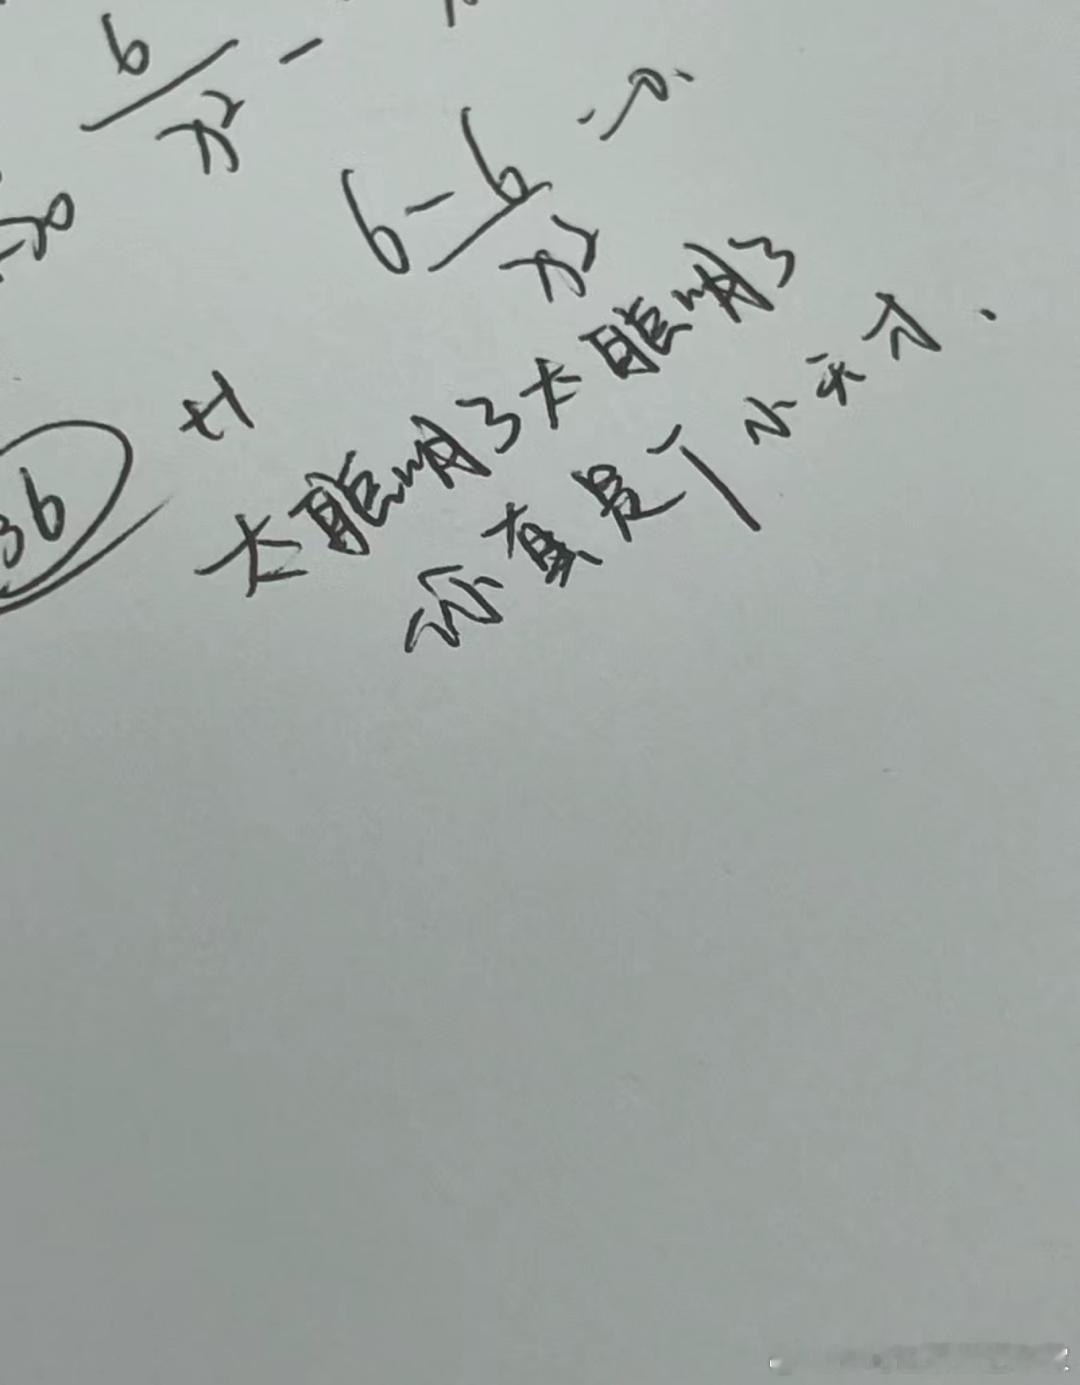 b/x² -
6-6/x²
36
+1
太聪明了太聪明了
你真是个小天才.